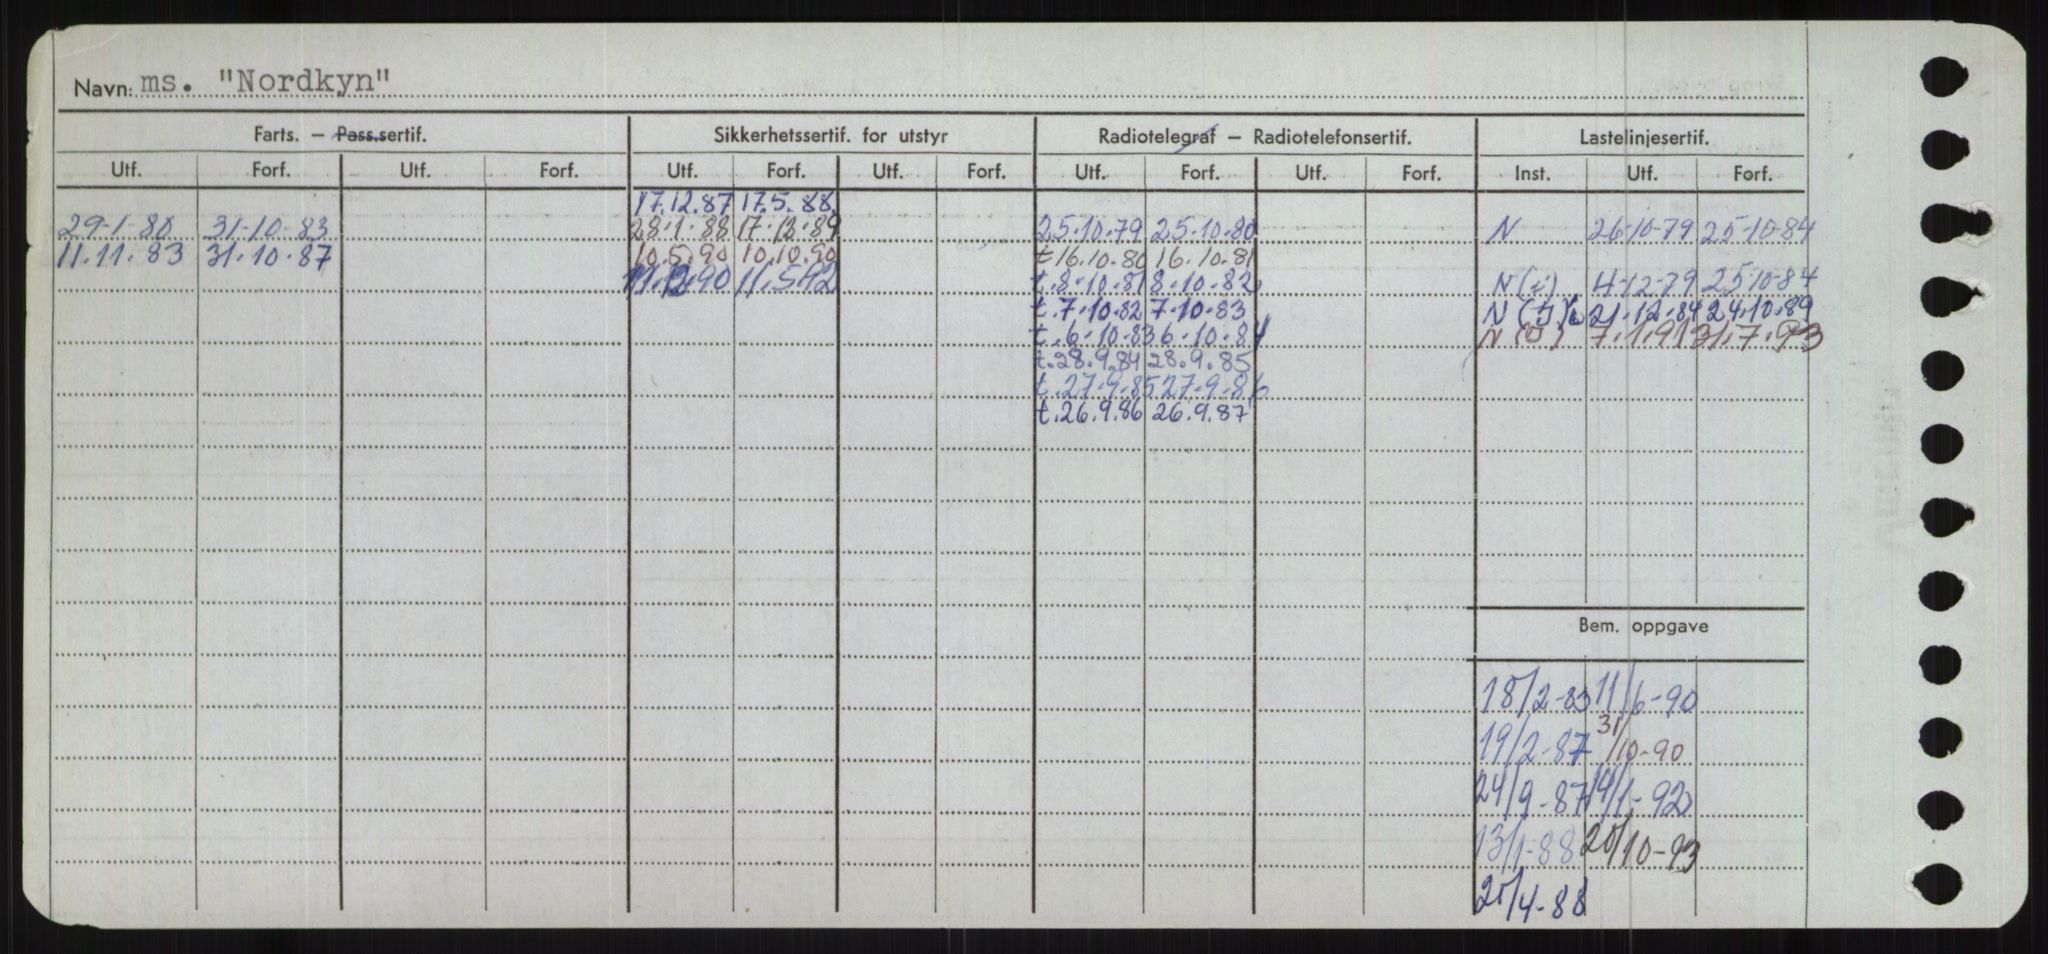 Navn: ms. "Nordkyn"
Farts. – Pass.sertif. Sikkerhetssertif. for utstyr Radiotelegraf – Radiotelefonsertif. Lastelinjesertif.
Utf. Forf. Utf. Forf. Utf. Forf. Utf. Forf. Utf. Forf. Utf. Forf. Inst. Utf. Forf.
17.12.87 17.5.88
29-1-80 31-10-83 28.1.88 17.12.89 25.10.79 25.10.80 N 26-10-79 25-10-84
11.11.83 31.10.87 10.5.90 10.10.90 t 16.10.80 16.10.81
90 11.5.92 t.8.10.81 8.10.82 N 4-12-79 25-10-84
t.7.10.82 7.10.83 N 21.12.84 24.10.89
t.6.10.83 6.10.84 N 7.1.91 31.7.93
t.28.9.84 28.9.85
t.27.9.85 27.9.86
t.26.9.86 26.9.87
Bem. oppgave
18/2-83 11/6-90
19/2-87 31/10-90
24/9-87 14/1-92
13/1-88 20/10-93
25/4-88